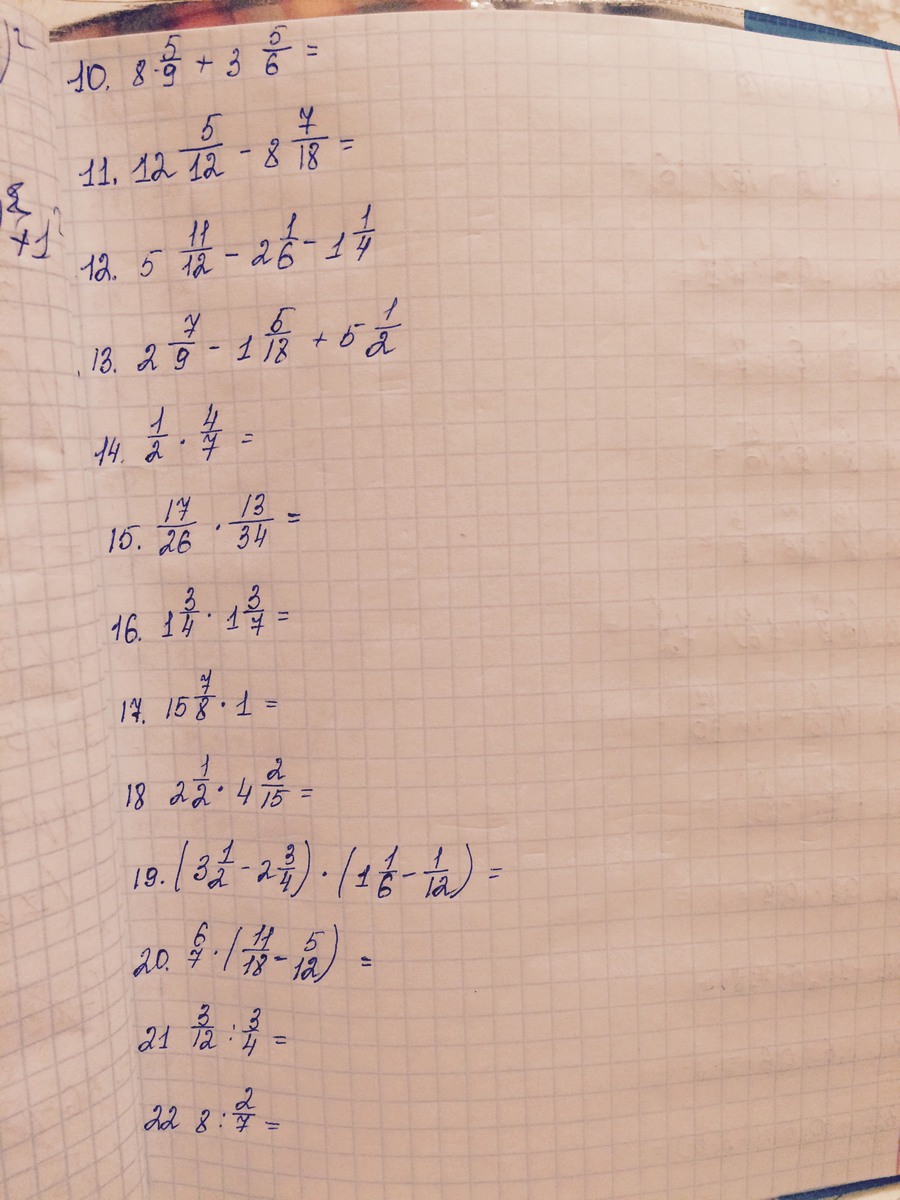 10. 8 5/9 + 3 5/6 =
11. 12 5/12 - 8 7/18 =
12. 5 11/12 - 2 1/6 - 1 1/4
13. 2 7/9 - 1 5/18 + 5 1/2
14. 1/2 · 4/7 =
15. 17/26 · 13/34 =
16. 1 3/4 · 1 3/7 =
17. 15 7/8 · 1 =
18 2 1/2 · 4 2/15 =
19. (3 1/2 - 2 3/4) · (1 1/6 - 1/12) =
20. 6/7 · (11/18 - 5/12) =
21 3/12 : 3/4 =
22 8 : 2/7 =
)2
+1